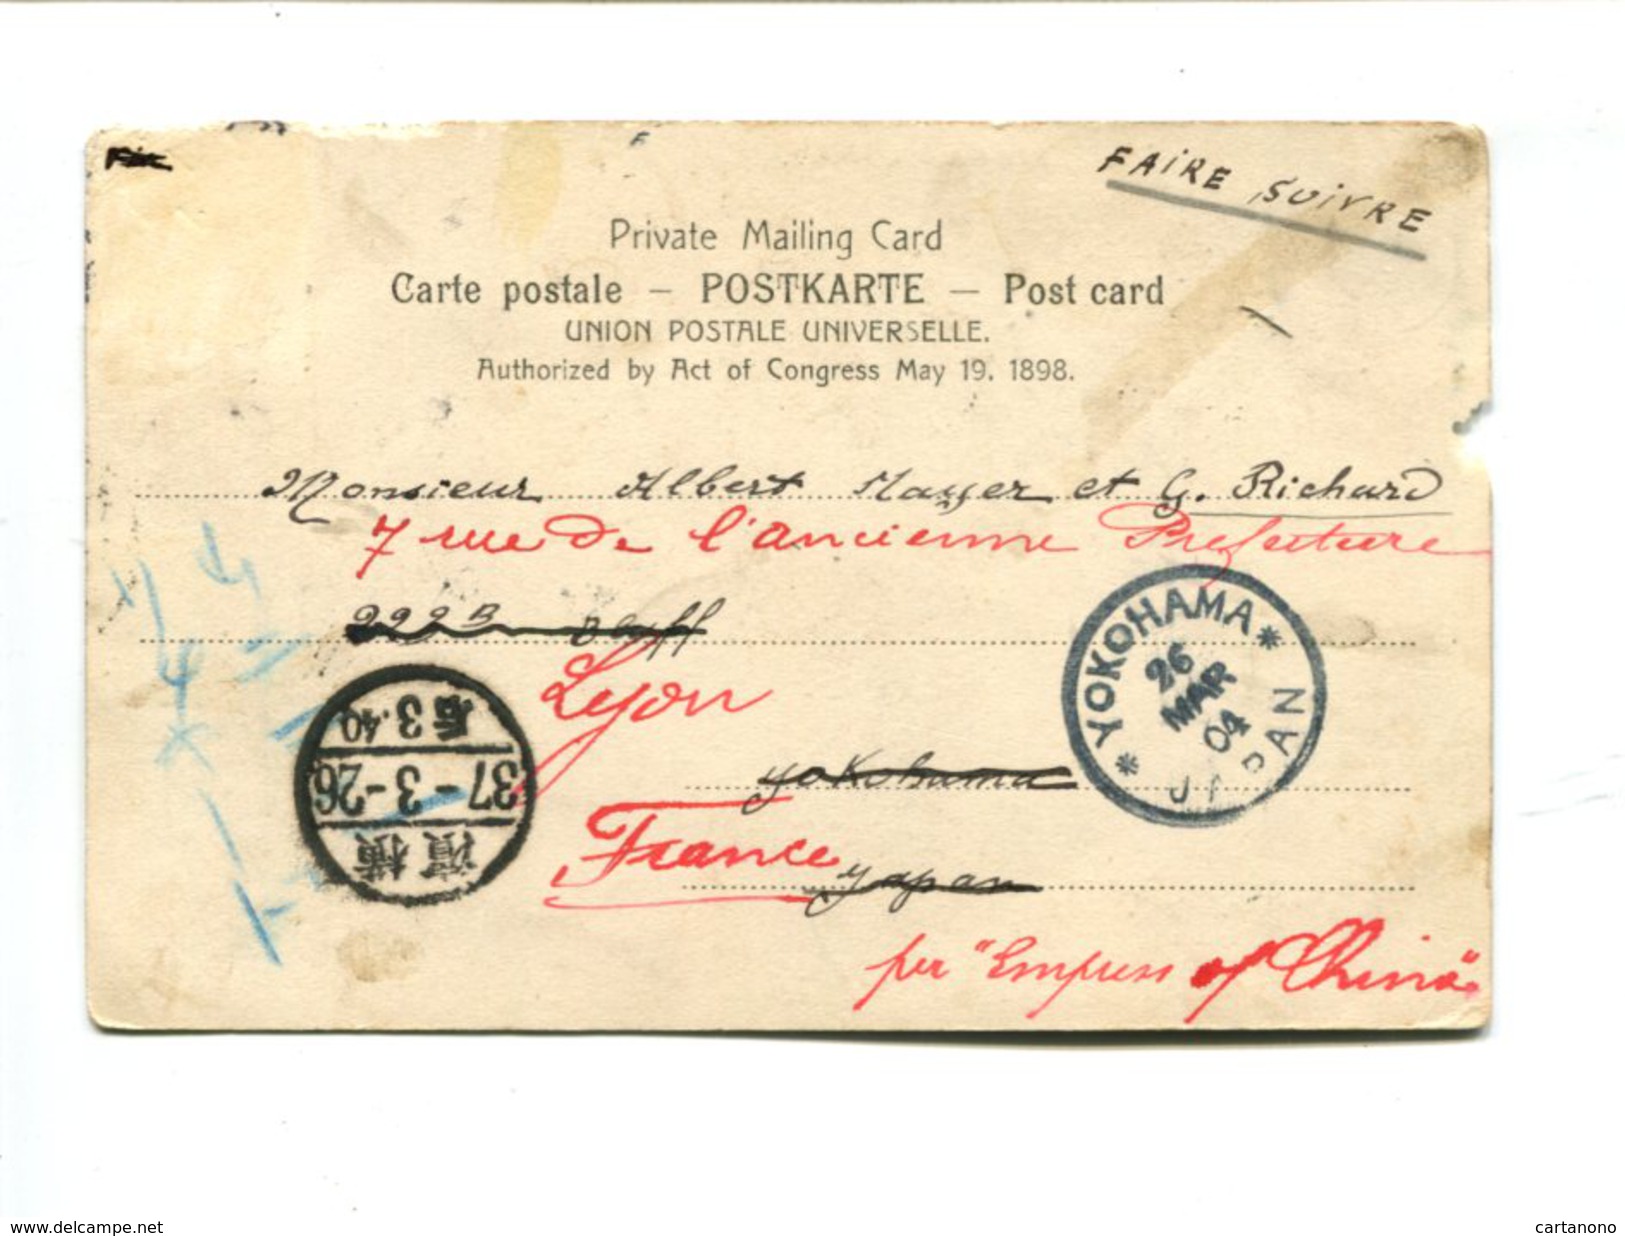 FAIRE SUIVRE
Private Mailing Card
Carte postale – POSTKARTE – Post card
UNION POSTALE UNIVERSELLE.
Authorized by Act of Congress May 19. 1898.
Monsieur Albert Mayer et G. Richard
7 rue de l'ancienne Prefecture
222B Bluff
Lyon
Yokohama
France
Yapan
per "Empress of China"
YOKOHAMA
26
MAR
04
JAPAN
橫濱
37-3-26
后3.40
www.delcampe.net
cartanono